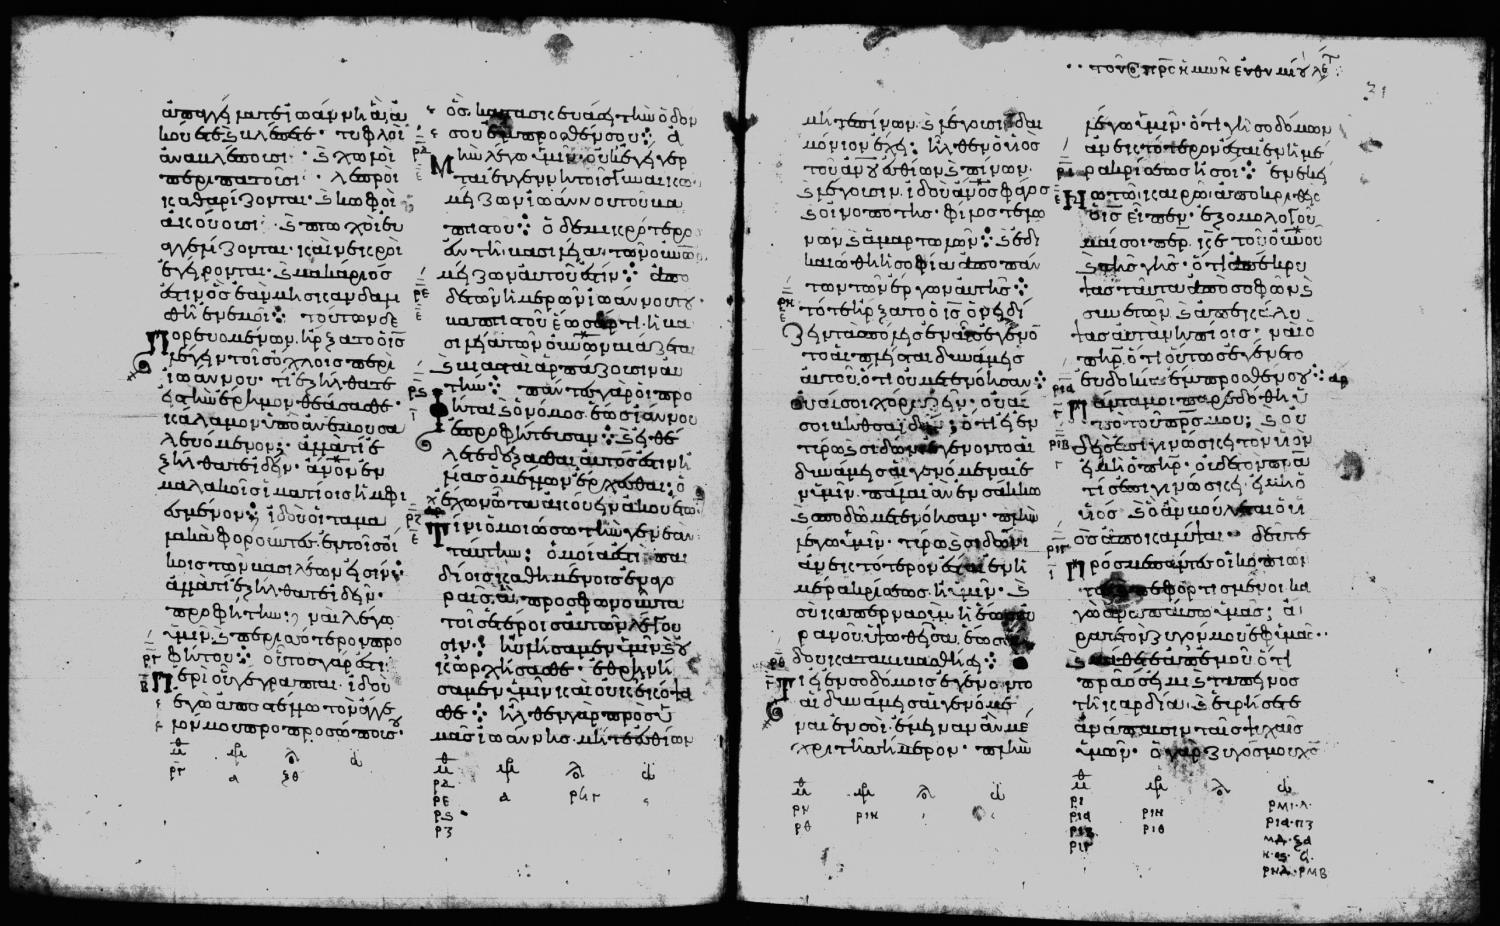 ἀπαγγείλατε ἰωάννη ἃ ἀ
κούετε καὶ βλέπετε· τυφλοὶ
ἀναβλέπουσι· καὶ χωλοὶ
περιπατοῦσι· λεπροὶ
καθαρίζονται· καὶ κωφοὶ
ἀκούουσι· καὶ πτωχοὶ εὐ
αγγελίζονται· καὶ νεκροὶ
ἐγείρονται· καὶ μακάριός
ἐστιν ὃς ἐὰν μὴ σκανδαλι
σθῆ ἐν ἐμοί· τούτων δὲ
πορευομένων. ἤρξατο ὁ ις
λέγειν τοῖς ὄχλοις περὶ
ἰωάννου· τί ἐξήλθατε
εἰς τὴν ἔρημον θεάσασθε·
κάλαμον ὑπὸ ἀνέμου σα
λευόμενον; ἀλλὰ τί ἐ
ξήλθατε ἰδεῖν· ἄνον ἐν
μαλακοῖς ἱματίοις ἠμφι
εσμένον; ἰδοὺ οἱ τὰ μα
λακὰ φοροῦντες. ἐν τοῖς οἴ
κοις τῶν βασιλέων εἰσίν·
ἀλλὰ τί ἐξήλθατε ἰδεῖν·
προφήτην; ναὶ λέγω
ὑμῖν. καὶ περισσότερον προ
φήτου· οὗτος γάρ ἐστι
περὶ οὗ γέγραπται· ἰδοὺ
ἐγὼ ἀποστέλλω τὸν ἄγγε
λόν μου πρὸ προσώπου σου·
ὃς κατασκευάσει τὴν ὁδόν
σου ἔμπροσθέν σου· ἀ
μὴν λέγω ὑμῖν. οὐκ ἐγήγερ
ται ἐν γεννητοῖς γυναικῶν
μείζων ἰωάννου τοῦ βα
πτιστοῦ· ὁ δὲ μικρότερος
ἐν τῆ βασιλεία τῶν οὐνῶν
μείζων αὐτοῦ ἐστίν· ἀπὸ
δὲ τῶν ἡμερῶν ἰωάννου τοῦ
βαπτιστοῦ ἕως ἄρτι. ἡ βα
σιλεία τῶν οὐνῶν βιάζεται
καὶ βιασταὶ ἁρπάζουσιν αὐ
τήν· πάντες γὰρ οἱ προ
φῆται καὶ ὁ νόμος ἕως ἰωάννου
ἐπροφήτευσαν· καὶ εἰ θέ
λετε δέξασθαι αὐτός ἐστιν ἠ
λίας ὁ μέλλων ἔρχεσθαι· ὁ
ἔχων ὦτα ἀκούειν ἀκουέτω·
τίνι ὁμοιώσω τὴν γενεὰν
ταύτην; ὁμοία ἐστὶ παι
δίοις καθημένοις ἐν ἀγο
ραῖς. ἃ προσφωνοῦντα
τοῖς ἑτέροις αὐτῶν λέγου
σιν· ηὐλήσαμεν ὑμῖν καὶ οὐ
κ ὠρχήσασθε· ἐθρηνή
σαμεν ὑμῖν καὶ οὐκ ἐκόψα
σθε· ἦλθεν γὰρ πρὸς ὑ
μᾶς ἰωάννης. μήτε ἐσθίων
τοῦ ὁσ πρς ἡμῶν εὐθυμίου
μήτε πίνων. καὶ λέγουσι δαι
μόνιον ἔχει· ἦλθεν ὁ υἱὸς
τοῦ ἀνου ἐσθίων καὶ πίνων.
καὶ λέγουσιν. ἰδοὺ ἄνος φάγος
καὶ οἰνοπότης· φίλος τελω
νῶν καὶ ἁμαρτωλῶν· καὶ ἐδι
καιώθη ἡ σοφία ἀπὸ πάν
των τῶν ἔργων αὐτῆς·
τότε ἤρξατο ὁ ις ὀνειδί
ζειν τὰς πόλεις ἐν αἷς ἐγένο
το αἱ πλεῖσται δυνάμεις
αὐτοῦ. ὅτι οὐ μετενόησαν·
οὐαί σοι χοραζίν. οὐαί
σοι βηθσαϊδάν; ὅτι εἰ ἐν
τύρω καὶ σιδῶνι ἐγένοντο αἱ
δυνάμεις αἱ γενόμεναι ἐ
ν ὑμῖν. πάλαι ἂν ἐν σάκκω
καὶ σποδῶ μετενόησαν· πλὴν
λέγω ὑμῖν· τύρω καὶ σιδῶνι
ἀνεκτότερον ἔσται ἐν ἡ
μέρα κρίσεως ἢ ὑμῖν· καὶ
σὺ καπερναοὺμ ἡ ἕως τοῦ
ουρανοῦ ὑψωθεῖσα. ἕως
ἅδου καταβιβασθήση·
ὅτι εἰ ἐν σοδόμοις ἐγένοντο
αἱ δυνάμεις αἱ γενόμε
ναι ἐν σοί· ἔμειναν ἂν μέ
χρι τῆς σήμερον· πλὴν
λέγω ὑμῖν. ὅτι γῆ σοδόμων
ἀνεκτότερον ἔσται ἐν ἡμέ
ρα κρίσεως ἢ σοί· ἐν ἐκεί
νω τῶ καιρῶ ἀποκριθεὶς
ὁ ις εἶπεν· ἐξομολογοῦ
μαί σοι περ. κε τοῦ οὐνοῦ
καὶ τῆς γῆς· ὅτι ἀπέκρυ
ψας ταῦτα ἀπὸ σοφῶν καὶ
συνετῶν καὶ ἀπεκάλυ
ψας αὐτὰ νηπίοις· ναὶ ὁ
πηρ. ὅτι οὕτως ἐγένετο
εὐδοκία ἔμπροσθέν σου·
πάντα μοι παρεδόθη ὑ
πὸ τοῦ πρς μου; καὶ οὐ
δεὶς ἐπιγινώσκει τὸν υἱὸν
εἰ μὴ ὁ πηρ· οὐδὲ τὸν πρα
τὶς ἐπιγινώσκει εἰ μὴ ὁ
υἱὸς καὶ ὧ ἐὰν βούληται ὁ υἱ
ὸς ἀποκαλύψαι· δεῦτε
πρός με πάντες οἱ κοπιῶν
τες καὶ πεφορτισμένοι κα
γὼ ἀναπαύσω ὑμᾶς; ἄ
ρατε τὸν ζυγόν μου ἐφ ὑμᾶς
καὶ μάθετε ἀπ ἐμοῦ ὅτι
πρᾶός εἰμι καὶ ταπεινὸς
τῆ καρδία· καὶ εὑρήσετε
ἀνάπαυσιν ταῖς ψυχαῖς
ὑμῶν· ὁ γὰρ ζυγός μου χρη